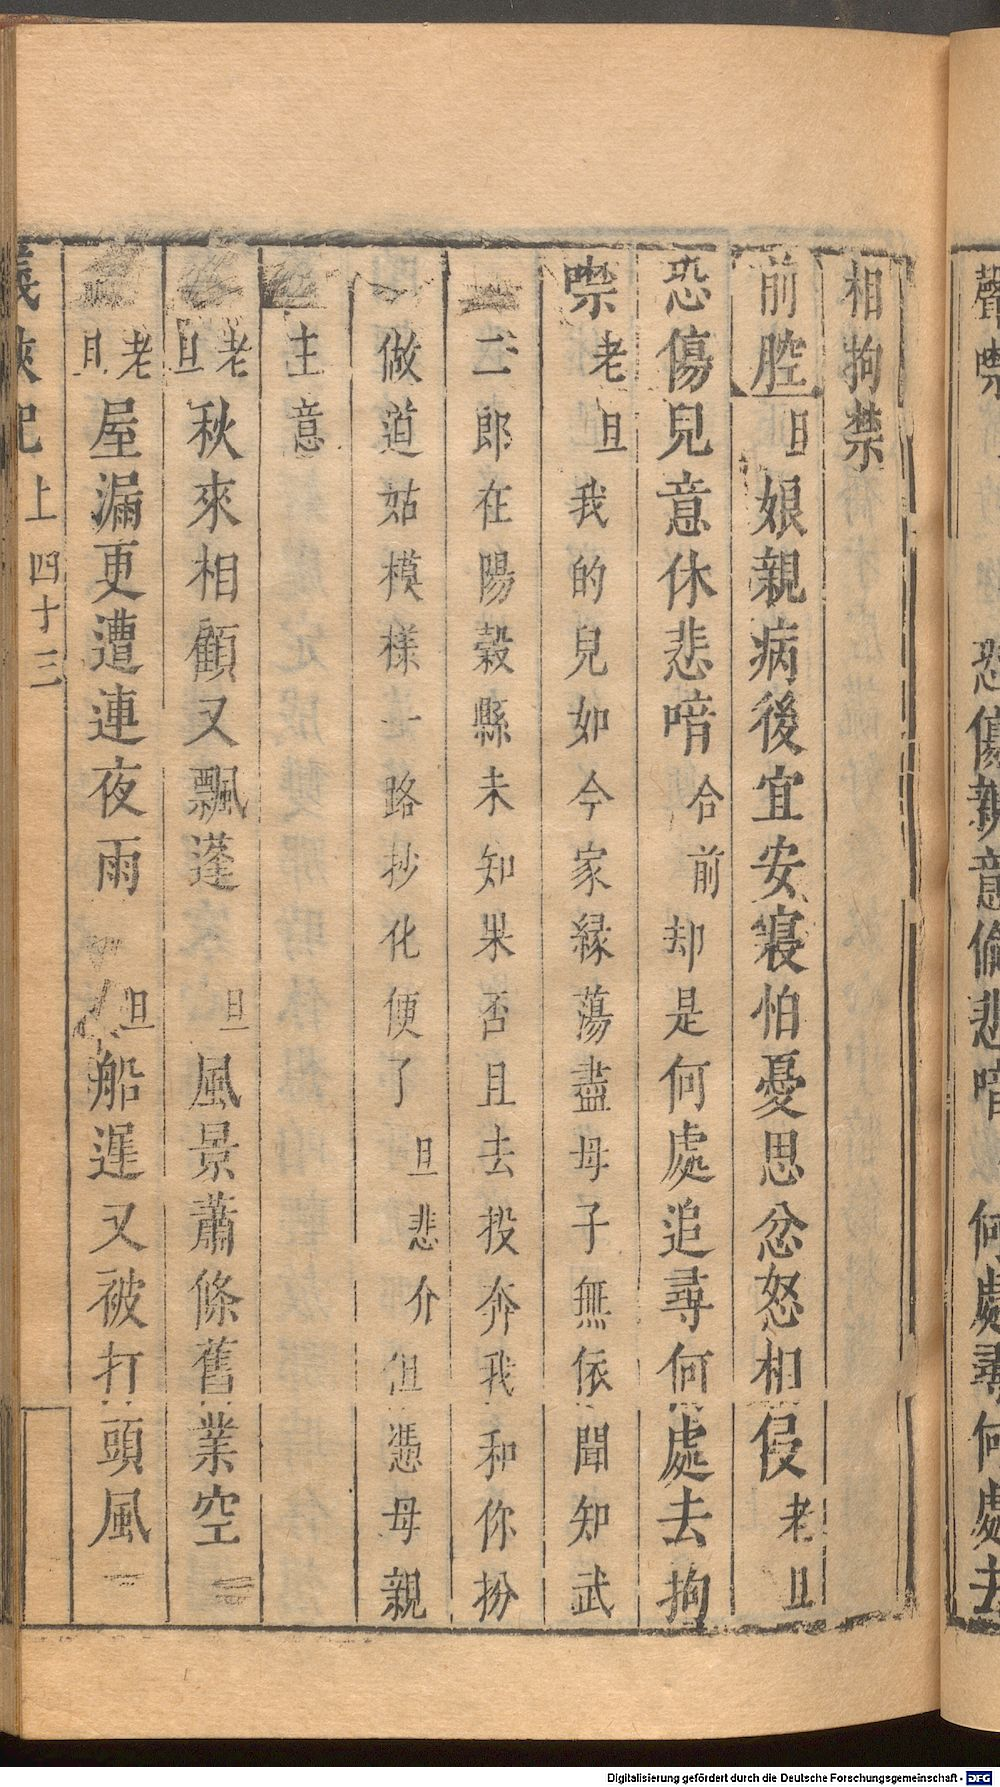 聲禁
恐傷親意偷悲喑
何處尋何處去
相拘禁
前腔旦娘親病後宜安寢怕憂思忿怒相侵老旦
恐傷兒意休悲喑合前却是何處追尋何處去拘
禁老旦我的兒如今家緣蕩盡母子無依聞知武
二郎在陽穀縣未知果否且去投奔我和你扮
做道姑模樣一路抄化便了旦悲介但憑母親
主意
老旦秋來相顧又飄蓬旦風景蕭條舊業空
老旦屋漏更遭連夜雨旦船遲又被打頭風
義俠記
上
四十三
Digitalisierung gefördert durch die Deutsche Forschungsgemeinschaft - DFG